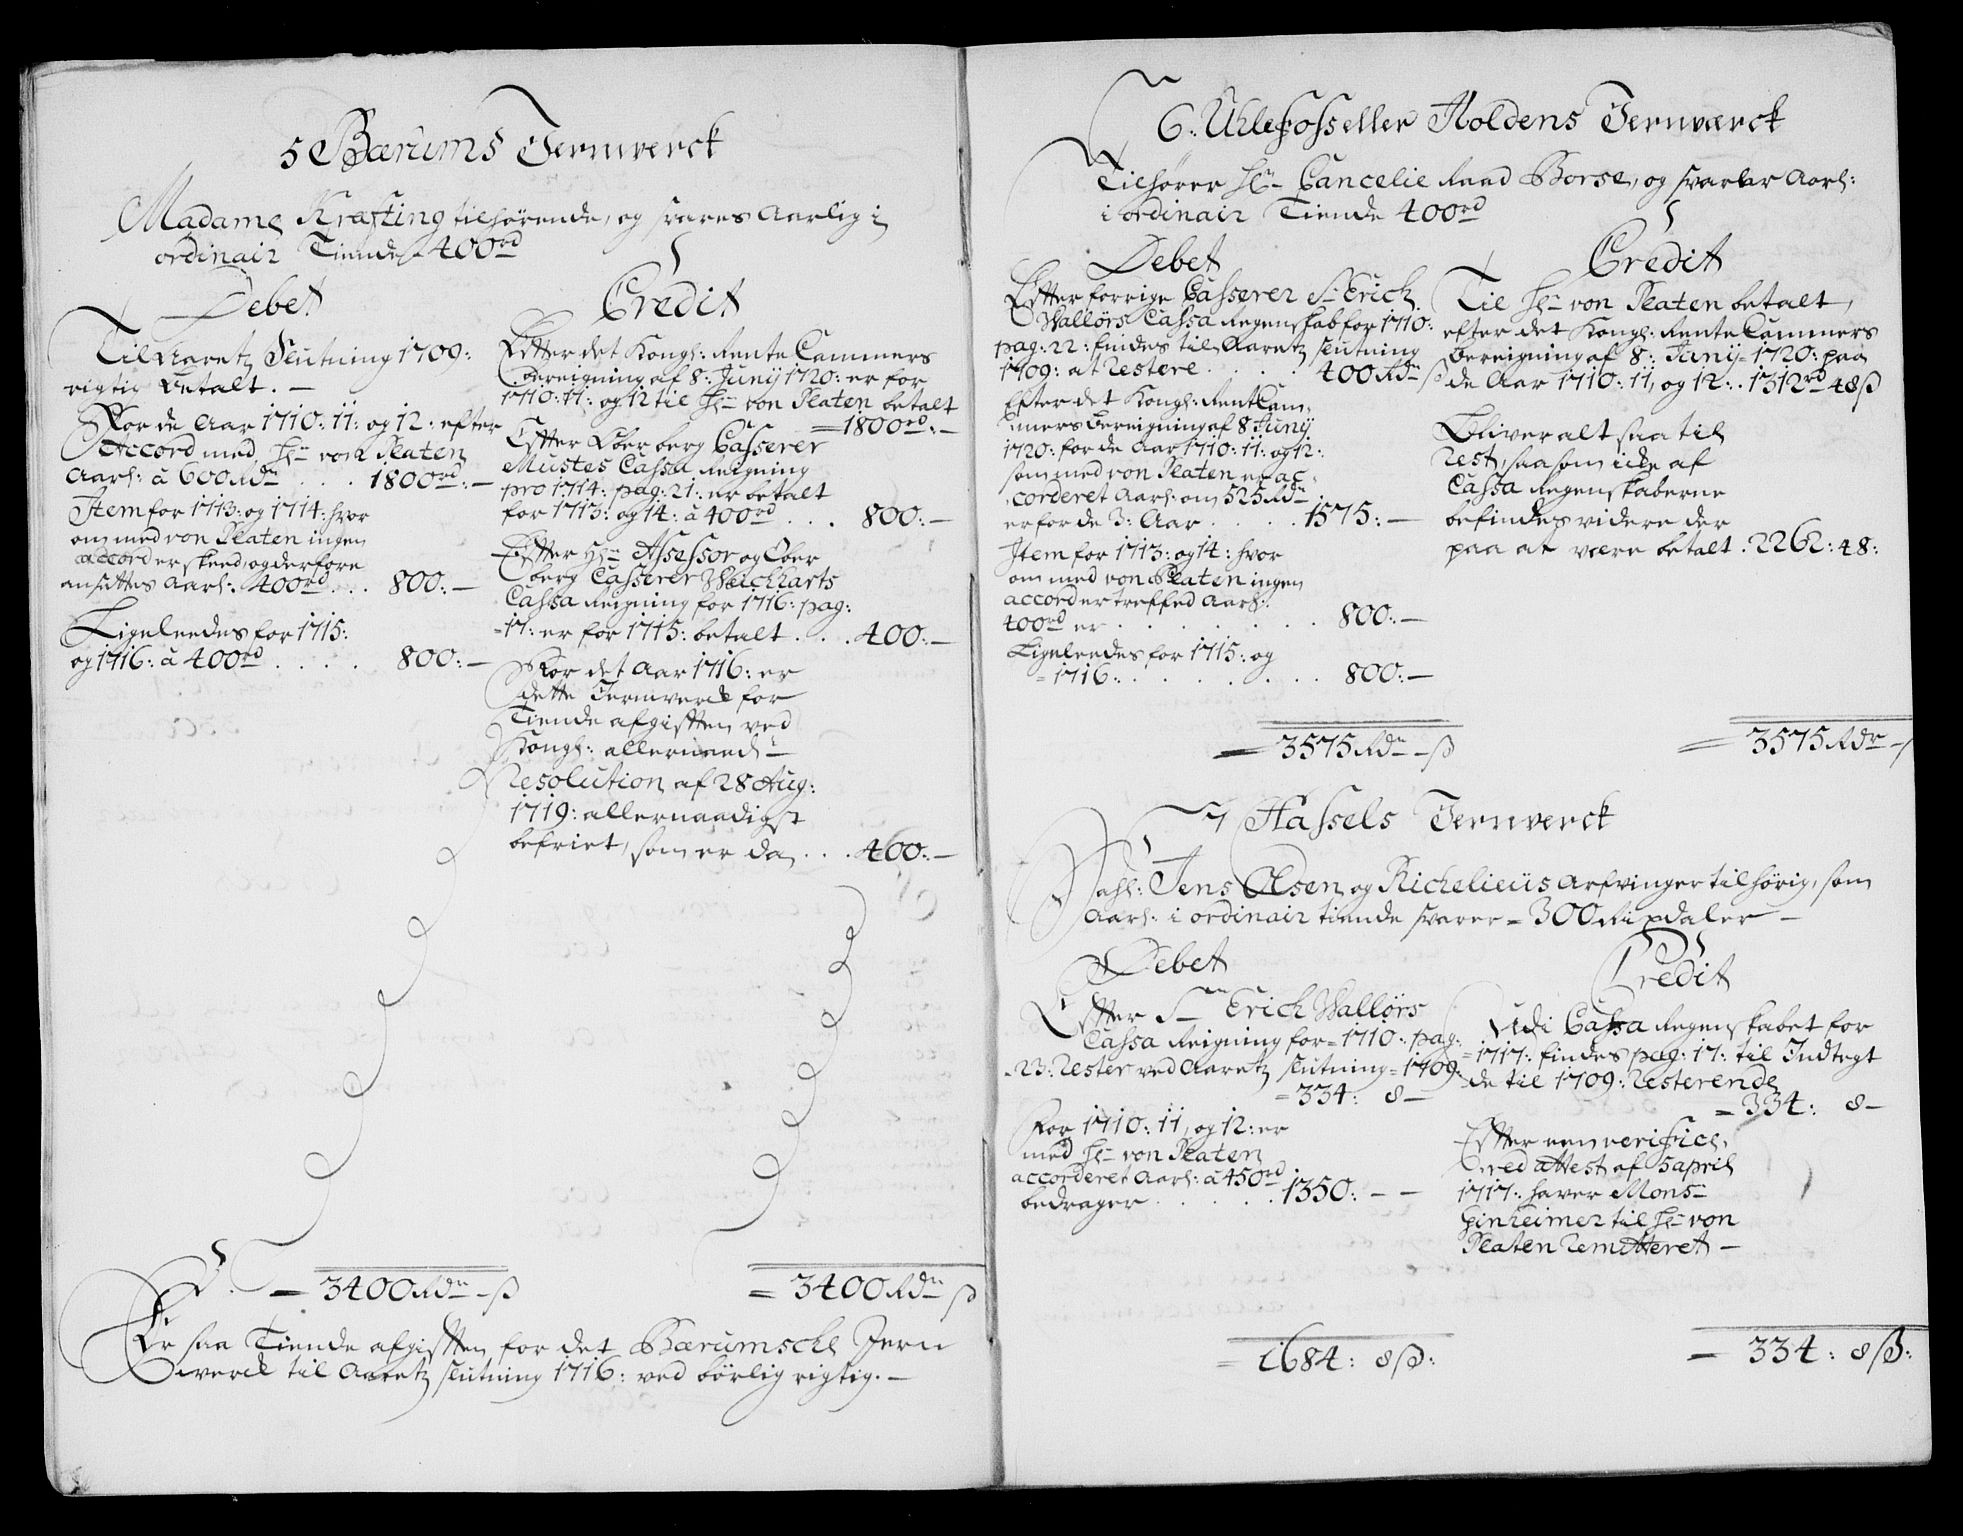 5 Bærums Jernverck
Madame Kræfting tilhørende, og svares Aarlig i
ordinair Tiende 400rd
Debet
Til Aaretz Slutning 1709:
rigtig betalt. —
For de Aar 1710: 11: og 12: efter
Accord med Hr von Platen
Aarl: à 600 Rdr . . . 1800rd: —
Item for 1713: og 1714: hvor
om med von Platen ingen
accord er skeed, og derfore
ansættes Aarl: 400rd . . . 800: —
Ligeleedes for 1715:
og 1716: à 400rd . . . . 800: —
= 3400 Rdr — ß
Credit
Efter det Kongl: Rente Cammers
bereigning af 8: Junij 1720: er for
1710: 11: og 12 til Hr von Platen betalt
= 1800rd: —
Efter Ober berg Casserer
Mustes Cassa Reigning
pro 1714: pag: 21: er betalt
for 1713: og 14: à 400rd . . . 800: —
Efter Hr Assessor og Ober
berg Casserer Weichharts
Cassa Reigning for 1716: pag:
17: er for 1715: betalt . . . 400: —
For det Aar 1716: er
dette Jernverck for
Tiende afgiften ved
Kongl: allernaad:
Resolution af 28 Aug:
1719: allernaadigst
befriet, som er da . . . 400: —
= 3400 Rdr ß
Er saa Tiende afgiften for det Bærumsche Jern
werck til Aaretz slutning 1716: ved børlig rigtig. —
6: Uhlefoss eller Holdens Jernværck
Tilhører Hr Cancelie Raad Borse, og svarer Aarl:
i ordinair Tiende 400rd
Debet
Efter forrige Casserer Sr Erich
Wallørs Cassa Regenskab for 1710:
pag: 22: findes til Aaretz slutning
1709: at restere . . . . . 400 Rdr ß
Efter det Kongl: Rent Cam-
mers bereigning af 8 Junij
1720: for de Aar 1710: 11: og 12:
som med von Platen er ac-
corderet Aarl: om 525 Rdr
er for de 3: Aar . . . . 1575: —
Item for 1713: og 14: hvor
om med von Platen ingen
accord er treffed Aarl:
400rd er . . . . . . . 800: —
Ligeleedes for 1715: og
1716: . . . . . . . 800: —
= 3575 Rdr — ß
Credit
Til Hr von Platen betalt,
efter det Kongl: Rente Cammers
bereigning af 8: Junij 1720: paa
de Aar 1710: 11, og 12: . 1312rd 48ß
Bliver alt saa til
rest, saasom icke af
Cassa Regenskaberne
befindes videre der
paa at være betalt . 2262: 48:
= 3575 Rdr — ß
7 Hassels Jernverck
Sahl: Jens Olsen og Richelieüs arfvinger tilhørig, som
Aarl: i ordinair tiende svarer = 300 Rixdaler —
Debet
Efter Sr Erich Wallørs
Cassa Reigning for 1710: pag:
23: rester ved Aaretz slutning 1709:
= 334: 8 —
For 1710: 11, og 12: er
med Hr von Platen
accorderet Aarl: à 450rd
bedrager . . . . . 1350: — —
= 1684: 8ß:
Credit
Udi Cassa Regenskabet for
1717: findes pag: 17: til Indtegt
de til 1709: resterende
= 334: 8 —
Efter een verificē-
red attest af 5 april
1717: haver Monsr
Hinheimer til Hr von
Platen remitteret —
= 334: 8ß: